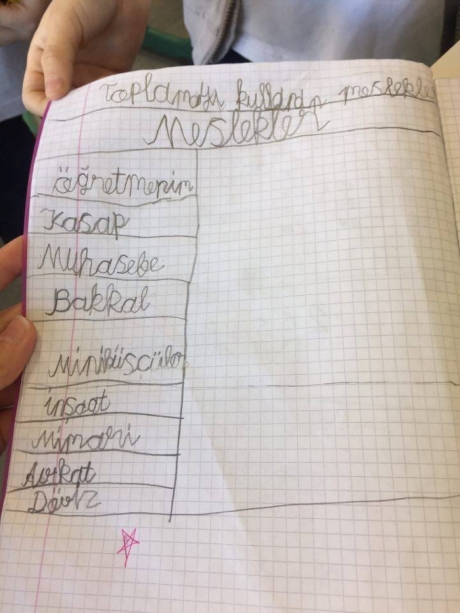 Toplamayı kullanan meslekle
Meslekler
öğretmenin
Kasap
Muhasebe
Bakkal
Minibüsçüler
inşaat
Mimari
Avukat